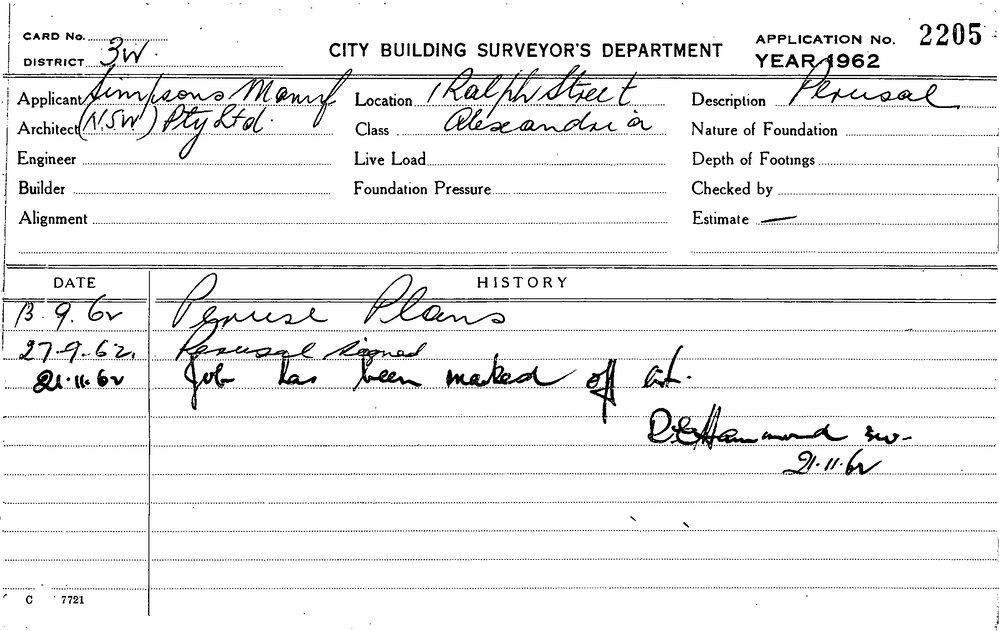 CARD No.
DISTRICT 3W.
CITY BUILDING SURVEYOR'S DEPARTMENT
APPLICATION No. 2205
YEAR 1962
Applicant Simpsons Manuf
Architect (N.S.W) Pty Ltd.
Engineer
Builder
Alignment
Location 1 Ralph Street
Class Alexandria
Live Load
Foundation Pressure
Description Perusal
Nature of Foundation
Depth of Footings
Checked by
Estimate —
DATE HISTORY
13.9.62 Peruse Plans
27-9-62. Perusal signed
21.11.62 Job has been marked off
Hammond 3W-
21.11.62
C 7721